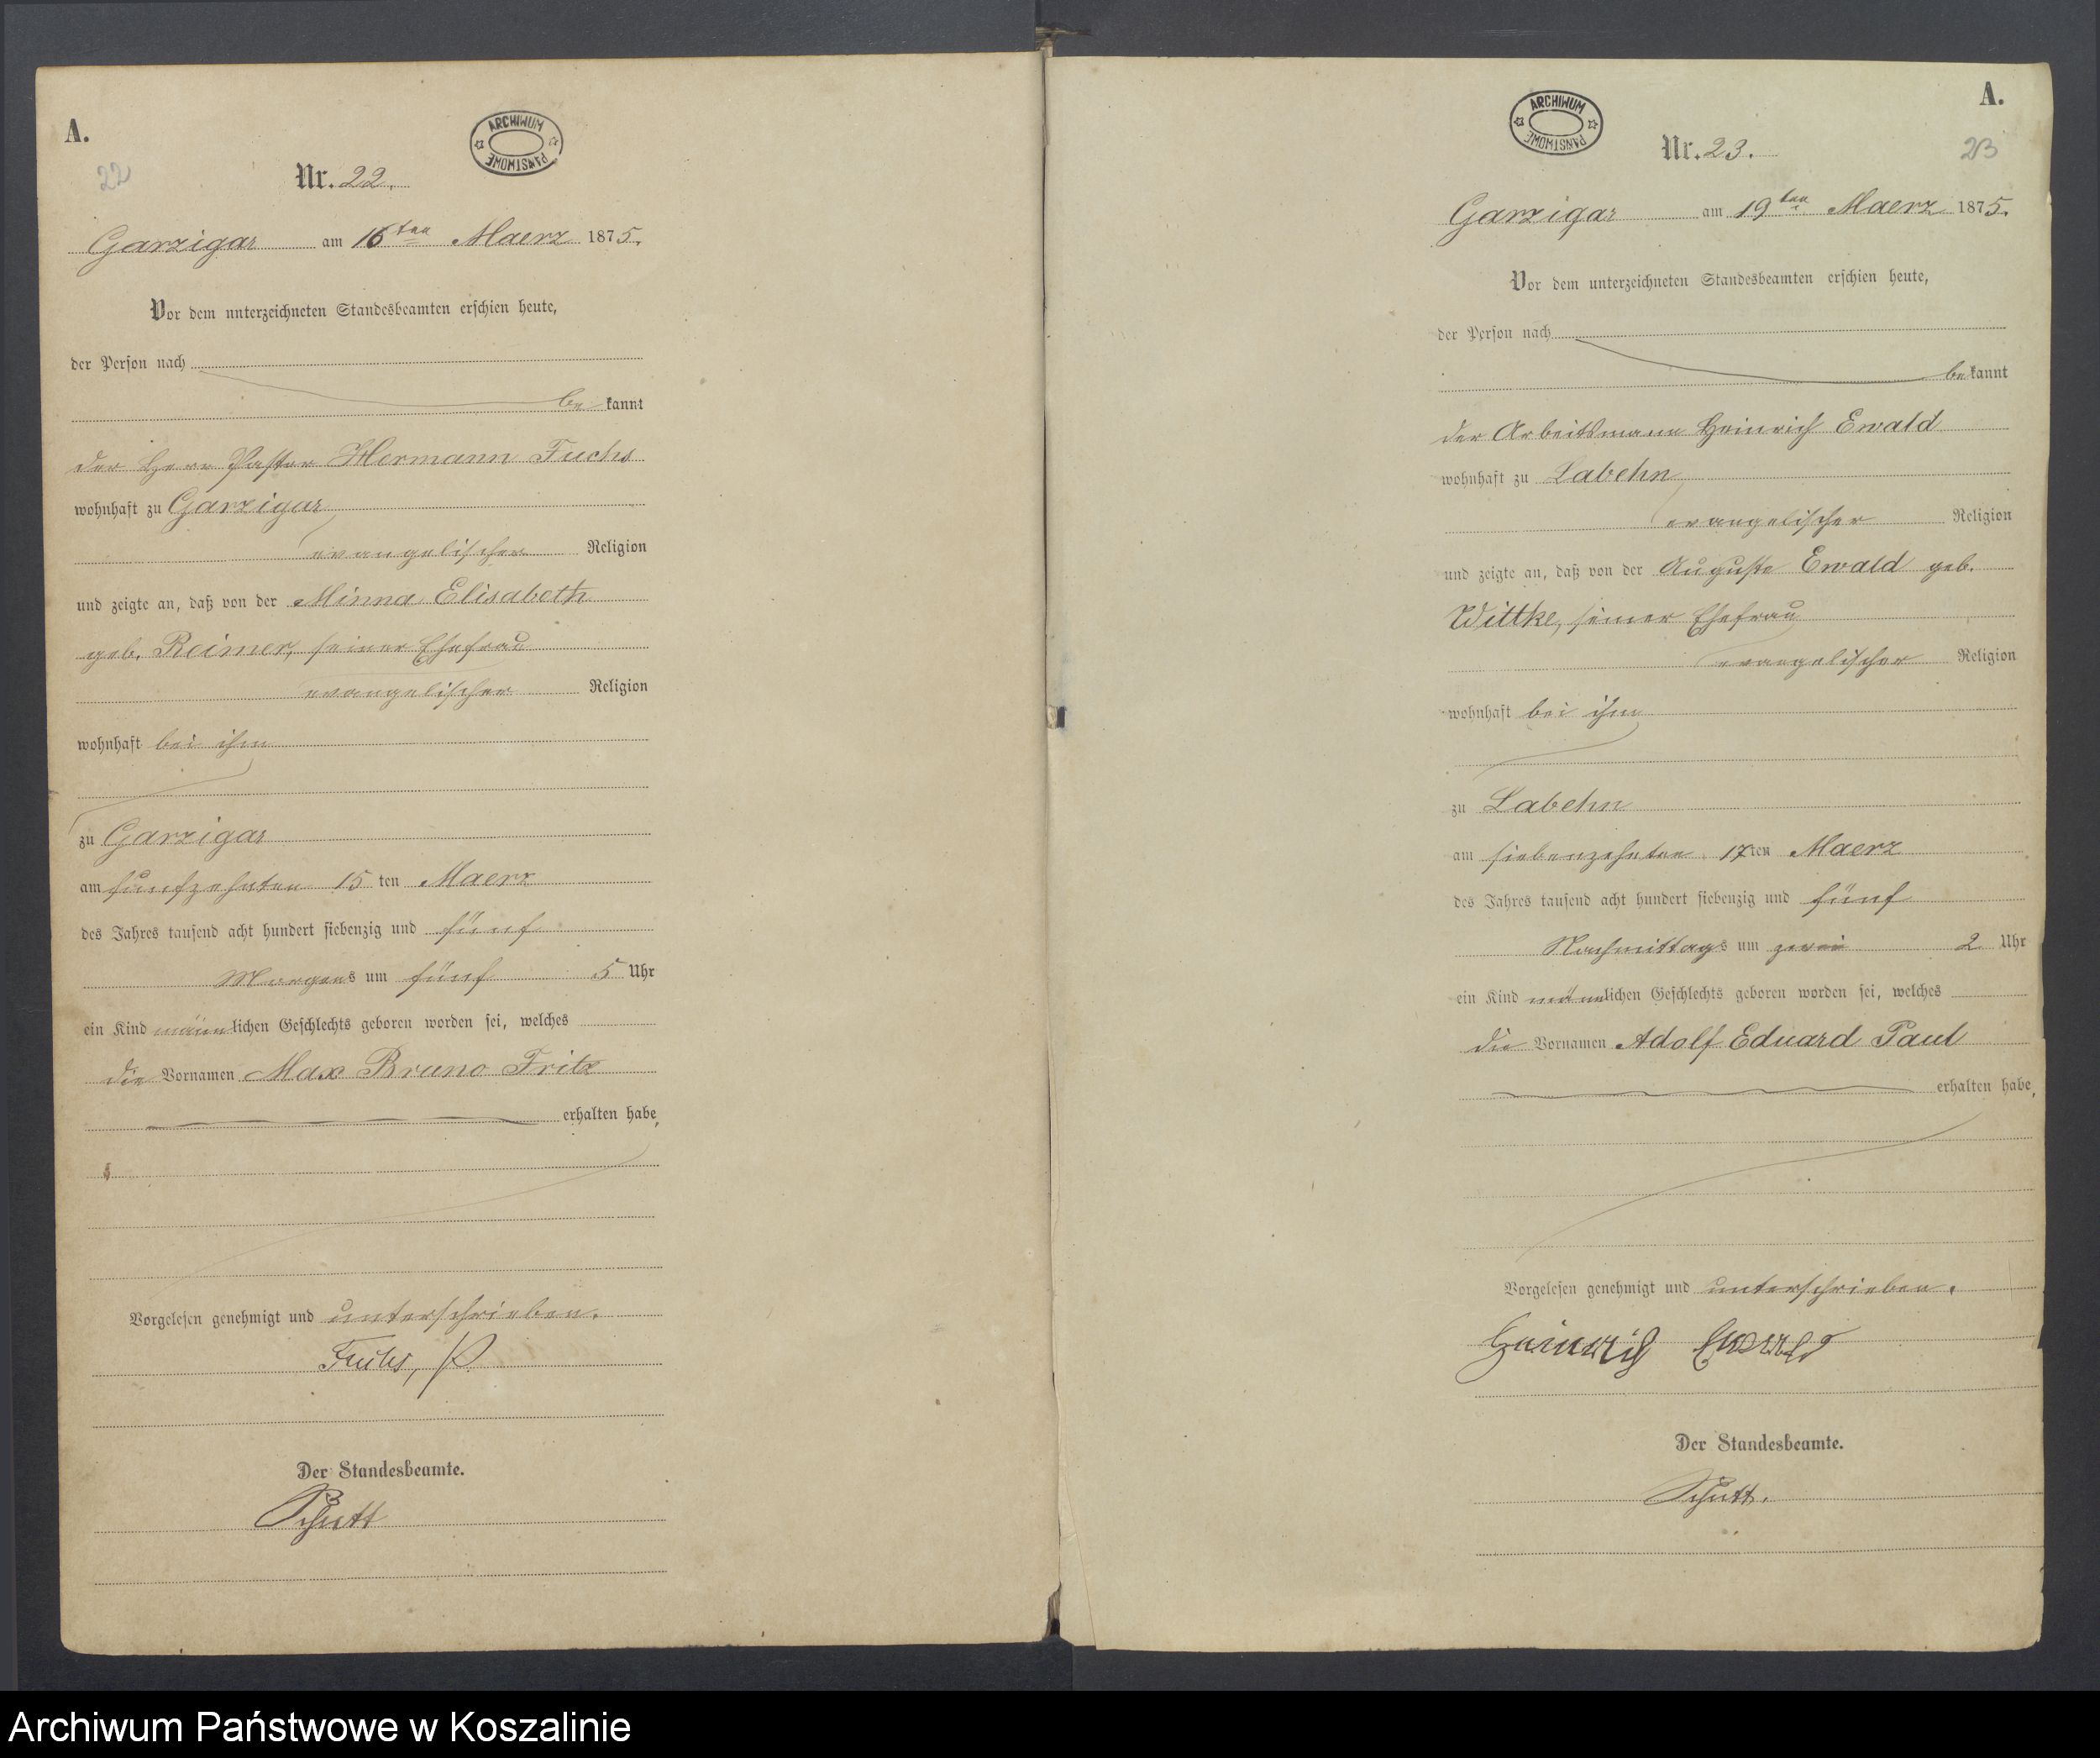 A.
22
ARCHIWUM
PAŃSTWOWE
Nr. 22.
Garzigar am 16ten Maerz 1875.
Vor dem unterzeichneten Standesbeamten erschien heute,
der Person nach
be kannt
der Herr Pastor Hermann Fuchs
wohnhaft zu Garzigar
evangelischer Religion
und zeigte an, daß von der Minna Elisabeth
geb. Reimer, seiner Ehefrau
evangelischer Religion
wohnhaft bei ihm
zu Garzigar
am fünfzehnten 15 ten Maerz
des Jahres tausend acht hundert siebenzig und fünf
Morgens um fünf 5 Uhr
ein Kind männlichen Geschlechts geboren worden sei, welches
die Vornamen Max Bruno Fritz
erhalten habe,
Vorgelesen genehmigt und unterschrieben.
Fuchs, P.
Der Standesbeamte.
Schutt
A.
23
ARCHIWUM
PAŃSTWOWE
Nr. 23.
Garzigar am 19ten Maerz 1875.
Vor dem unterzeichneten Standesbeamten erschien heute,
der Person nach
bekannt
der Arbeitsmann Heinrich Ewald
wohnhaft zu Labehn
evangelischer Religion
und zeigte an, daß von der Auguste Ewald geb.
Wittke, seiner Ehefrau
evangelischer Religion
wohnhaft bei ihm
zu Labehn
am siebenzehnten 17ten Maerz
des Jahres tausend acht hundert siebenzig und fünf
Nachmittags um zwei 2 Uhr
ein Kind männlichen Geschlechts geboren worden sei, welches
die Vornamen Adolf Eduard Paul
erhalten habe,
Vorgelesen genehmigt und unterschrieben.
Heinrich Ewald
Der Standesbeamte.
Schutt.
Archiwum Państwowe w Koszalinie